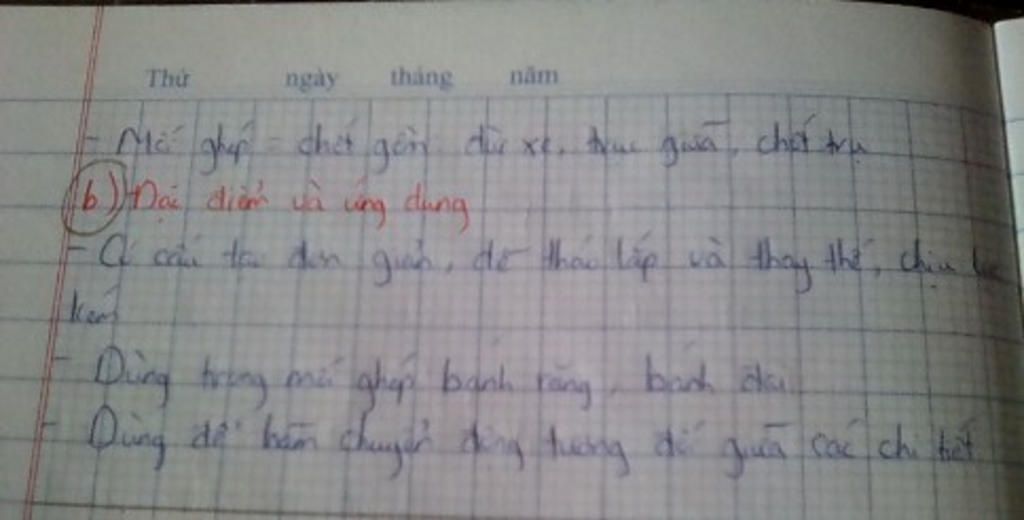 Thứ ngày tháng năm
- Mối ghép = chốt gồm: đùi xe, trục giữa, chốt trụ
b) Đặc điểm và ứng dụng
- Có cấu tạo đơn giản, dễ tháo lắp và thay thế, chịu lực
kém
- Dùng trong mối ghép bánh răng, bánh đai
- Dùng để hãm chuyển động tương đối giữa các chi tiết